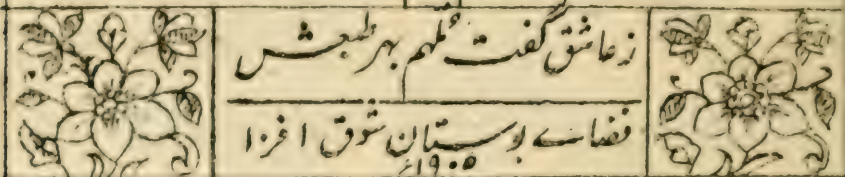 ز عاشق گفت ملہم بہر طبعش
فضاے بوستان شوق افزا
۱۹۰۵ء